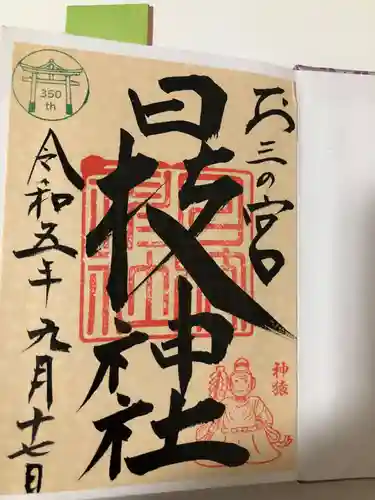 お三の宮
日枝神社
令和五年九月十七日
350
th
神猿